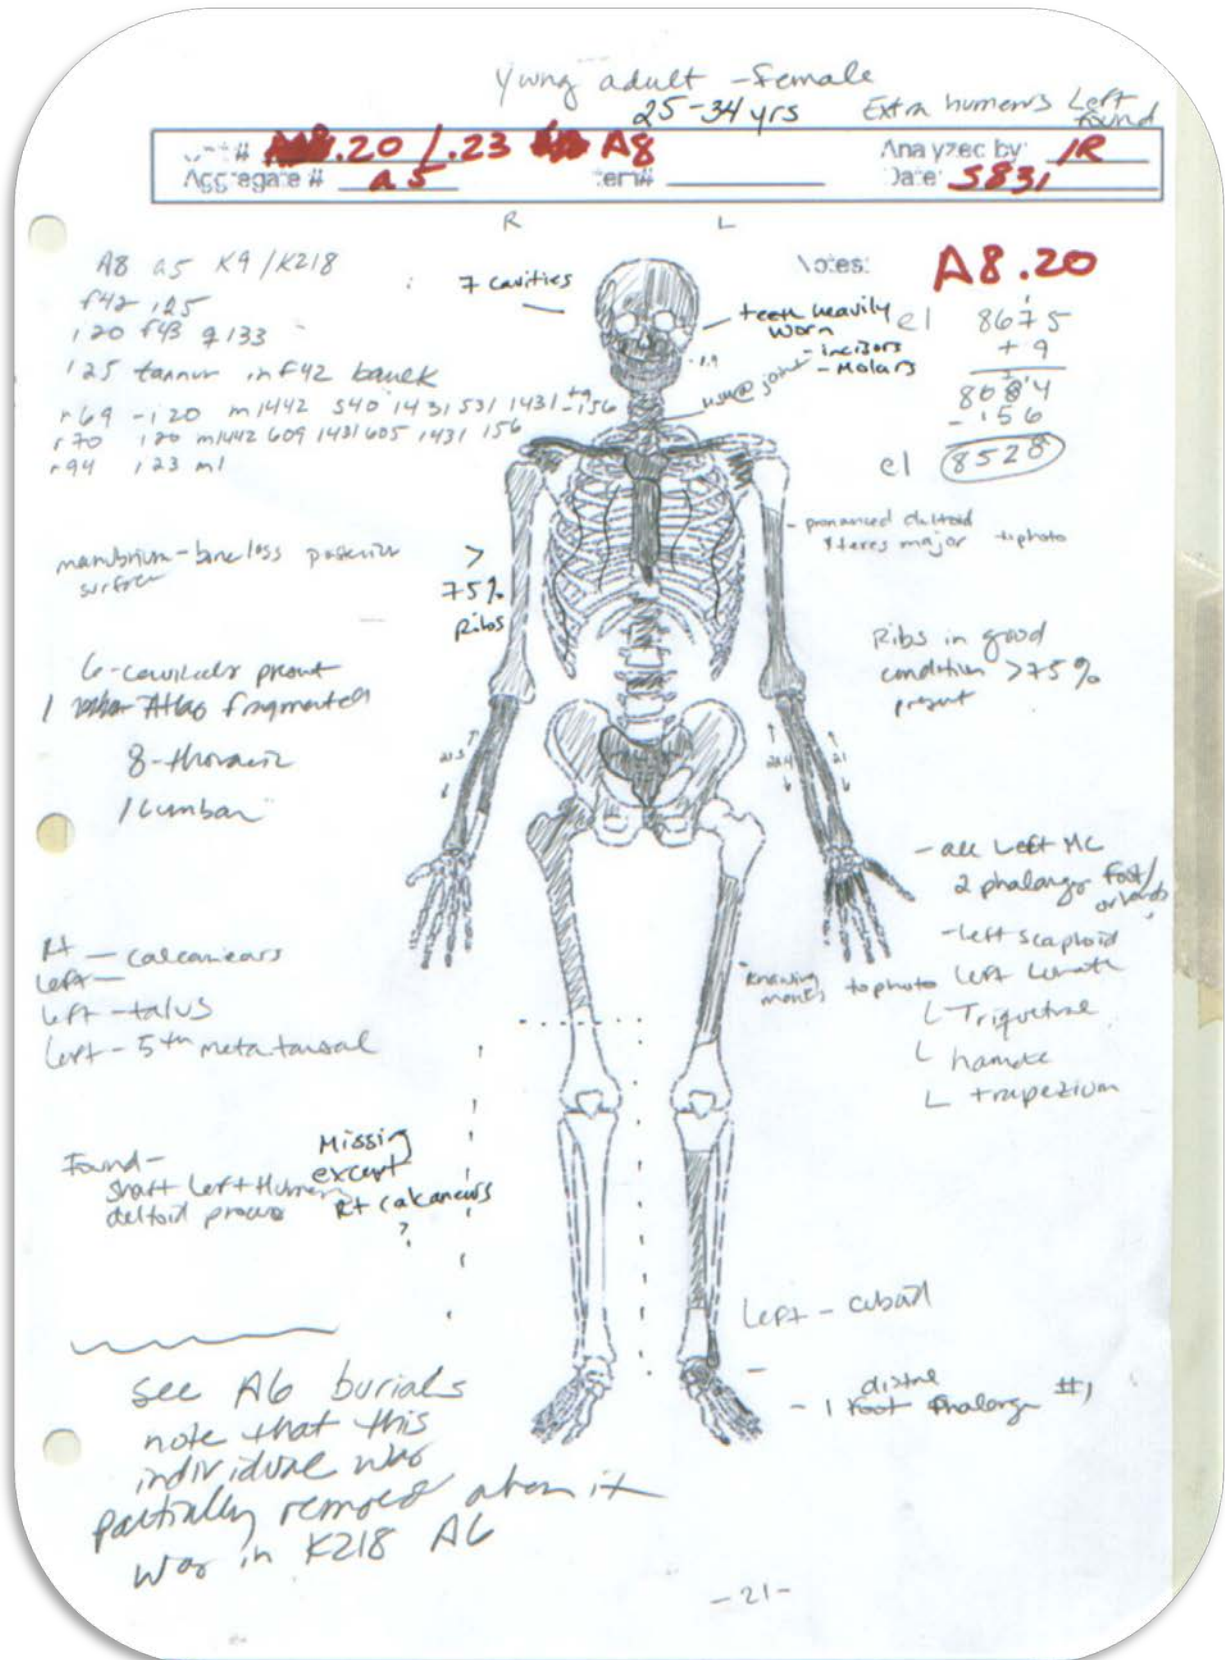 Young adult - female
25-34 yrs
Extra humerus Left found
.20 /.23 A8
Analyzed by: IR
Aggregate # a5
Item#
Date: S831
R L
A8 a5 K9/K218
f42 i25
i20 f43 q133
i25 tannur in f42 baulk
r69 - i20 m1442 540 1431 531 1431 +9 -156
r70 i20 m1442 609 1431 605 1431 156
r94 i23 m1
7 cavities
teeth heavily worn
- incisors
- Molars
@ joint
Notes: A8.20
el 8675
+ 9
8084
- 156
el 8528
manubrium - bone loss posterior
surface
>
75%
Ribs
deltoid
& teres major to photo
Ribs in good
condition >75%
present
6 - cervicals present
1 Atlas fragmented
8 - thoracic
1 lumbar
21
- all Left MC
2 phalanges foot/
or hands
- left scaphoid
left lunate
L Triquetral
L hamate
L trapezium
marks to photo
Rt — calcanears
Left —
Left - talus
Left - 5th metatarsal
Found -
shaft Left Humerus
deltoid process
Missing
except
Rt calcaneus
?
Left - cuboid
distal
- 1 foot Phalange #1
see A6 burials
note that this
individual was
partially removed when it
was in K218 A6
- 21 -